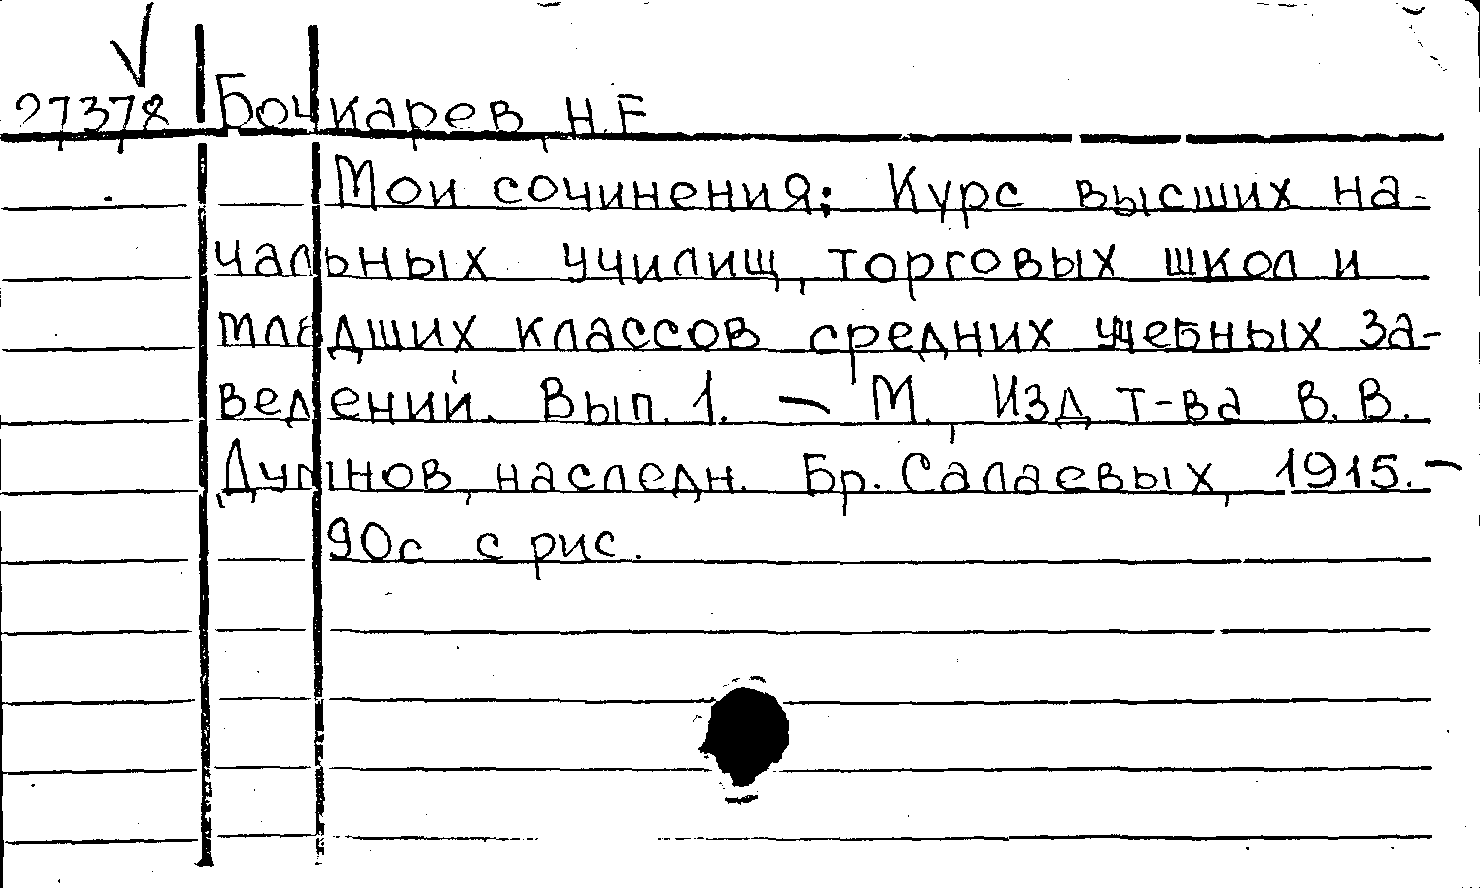 27378 Бочкарев, Н.Е
Мои сочинения: Курс высших на-
чальных училищ, торговых школ и
младших классов средних учебных за-
ведений. Вып. 1. — М., Изд т-ва В. В.
Думнов, наследн. Бр. Салаевых, 1915. —
90с с рис.